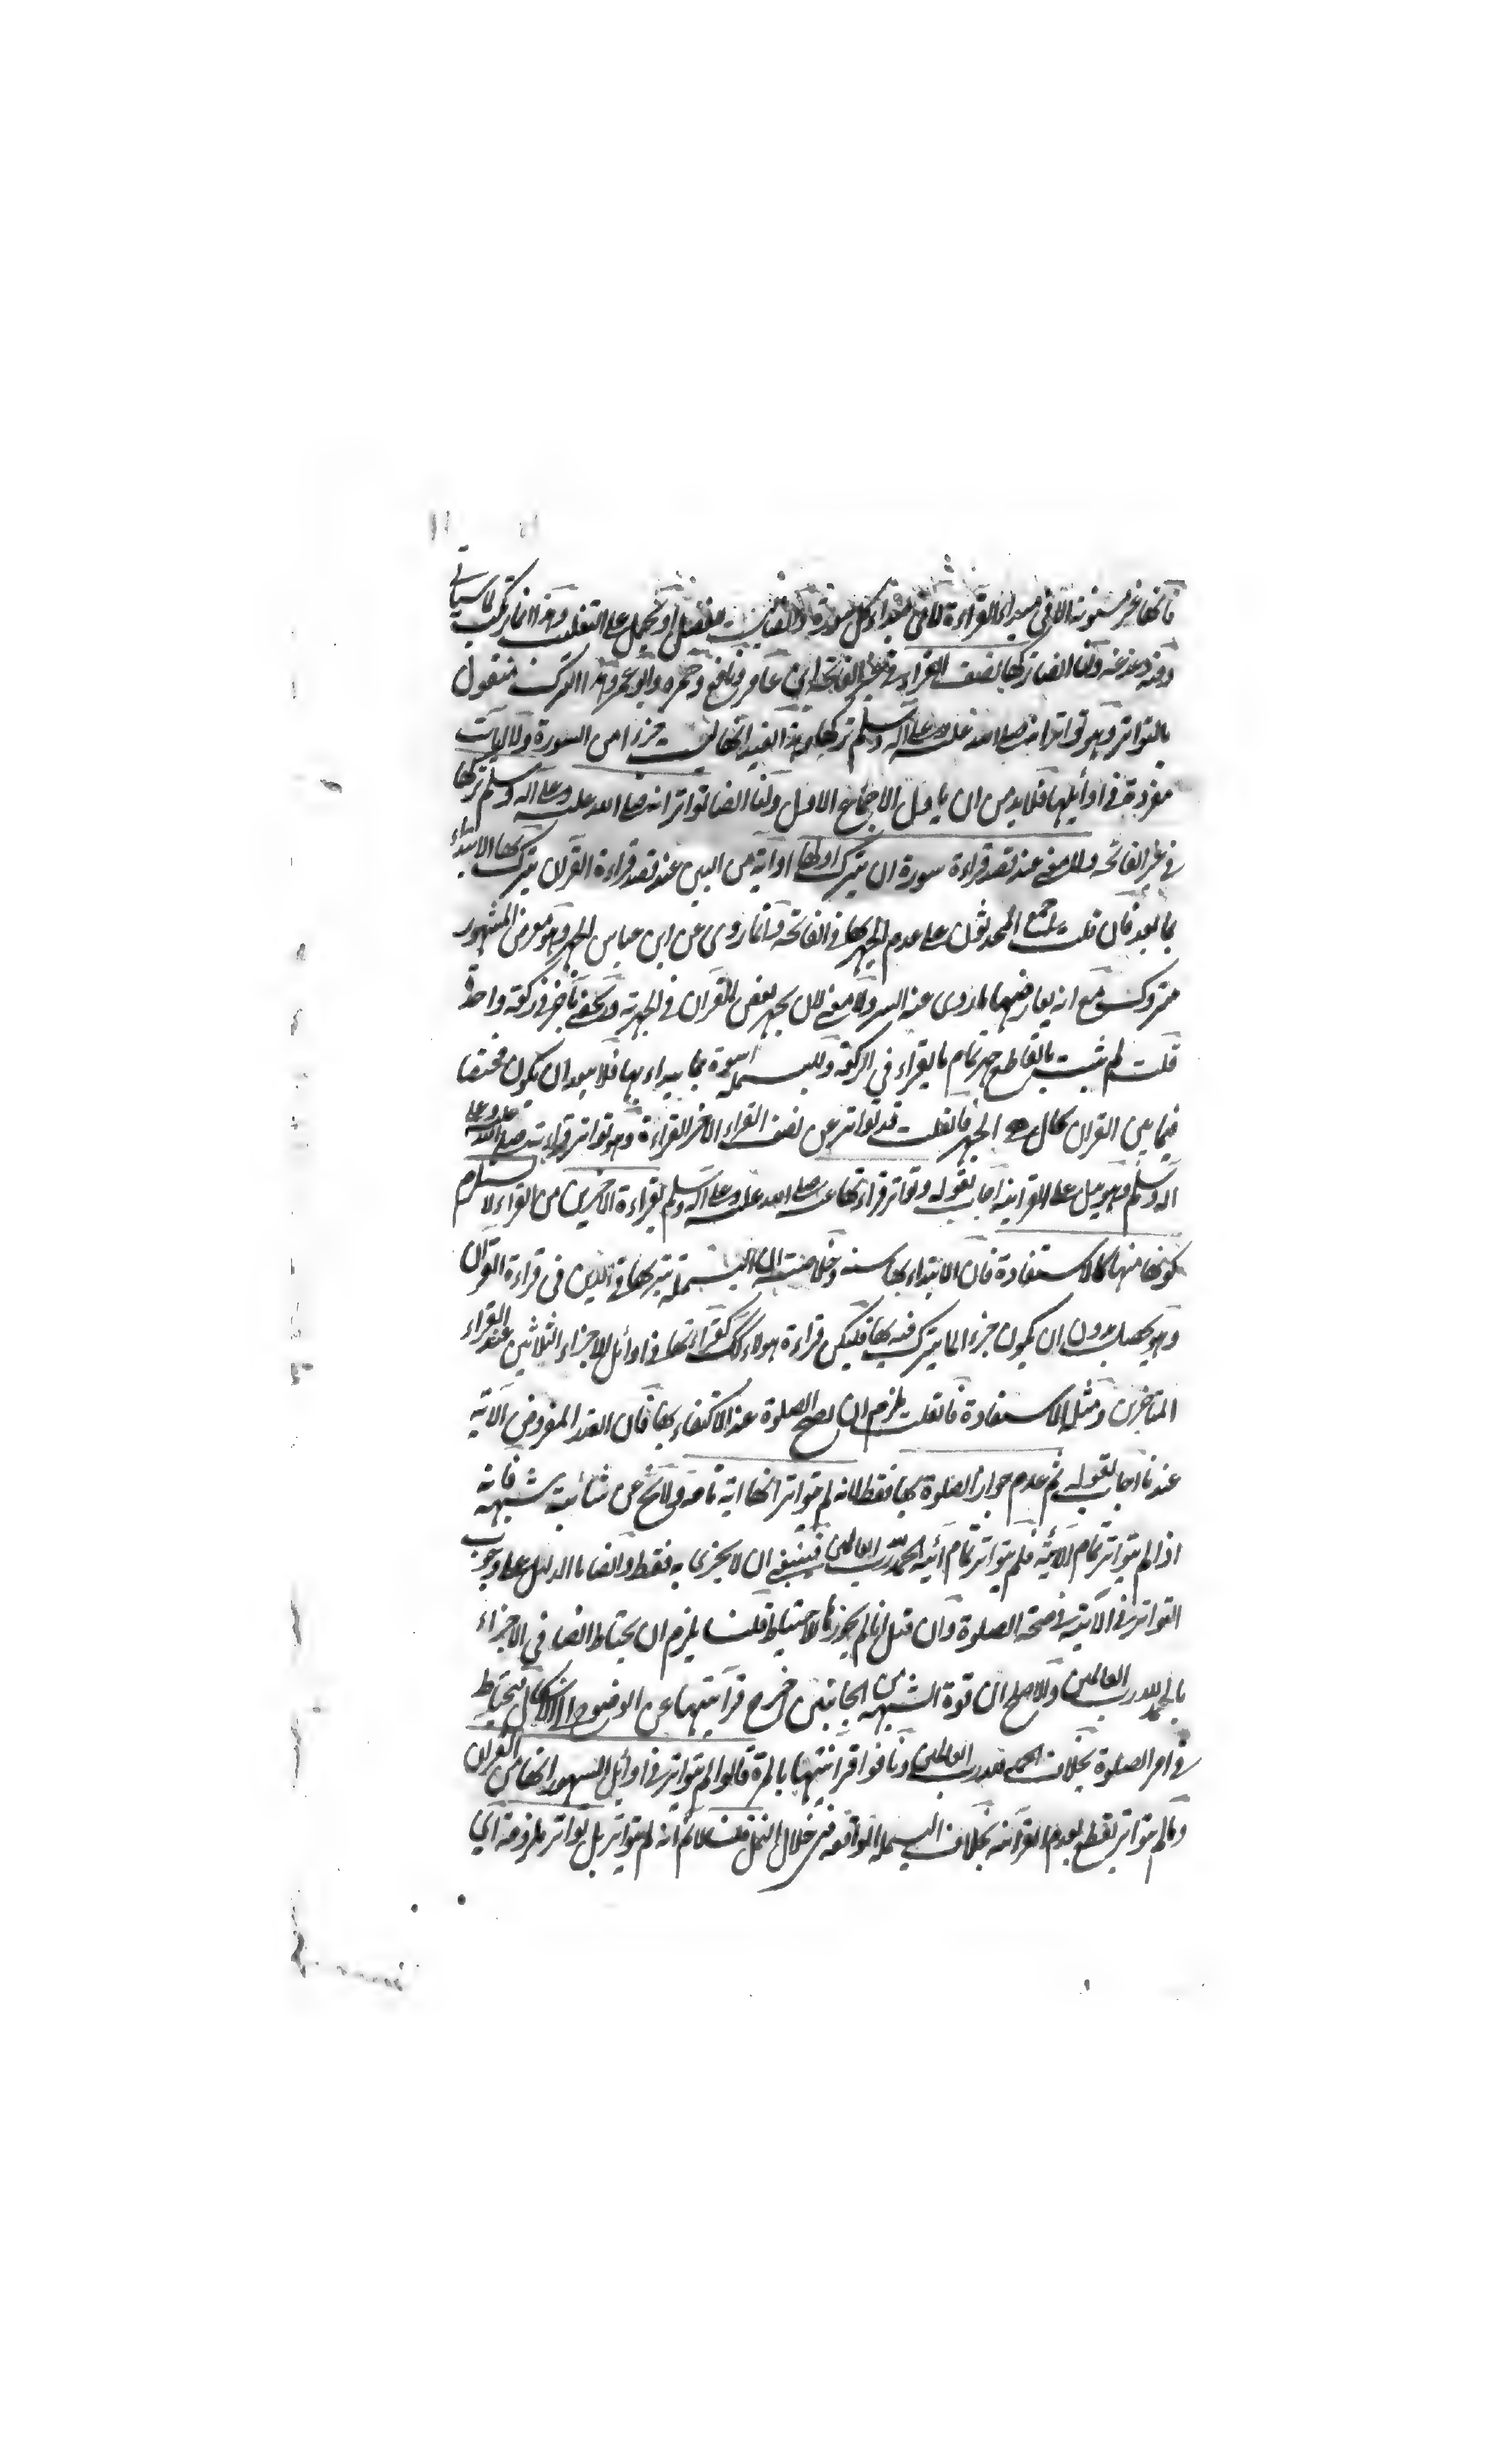 فانها غير مسنونة الا في مبداء القراءة لا في مبداء كل سورة والقائلين بفضل او يحمل على التغليب وهذا انما يرتكب لما سياتي
وفيه دغدغة ولنا ايضا تركها نصف القراء في غير الفاتحة ابن عامر ونافع وحمزة وابو عمرو وهذا الترك منقول
بالتواتر وهو تواتر انه صلى الله عليه وعلى اله وسلم تركها وهذا يفيد انها ليست جزءا من السورة ولا ايات
مفردة في اوائلها فلا بد من ان ياول الاجماع الاول ولنا ايضا تواتر انه صلى الله عليه وعلى اله وسلم تركها
في غير الفاتحة ولا معنى عند قصد قراءة سورة ان يترك اولها او اية من البين عند قصد قراءة القرآن يترك بها الابتداء
بما بعد فان قلت اجمع المحدثون على عدم الجهر بها في الفاتحة وانما روى عن ابن عباس الجهر وهو معروض المشهور
متروك مع انه يعارضها ما روى عنه السر ولا معنى لان يجهر بعض القرآن في الجهرية ويخفى بآخر في ركعة واحدة
قلت لم يثبت بالقاطع جهر تمام ما يقراء في الركعة وللبسملة اسوة بما يبداء بها فلا يبعد ان يكون مختصا
فيما بين القران كمال الجهر فان قلت قد تواتر عن نصف القراء الاخر القراءة وهو تواتر قراءته صلى الله عليه وعلى
اله وسلم وهو دليل على القرانية اجاب بقوله وتواتر قراءتها عنه صلى الله عليه وعلى اله وسلم بقراءة الآخرين من القراء لا يستلزم
كونها منها كالاستعاذة فان الابتداء بها سنة وخلاصته ان البسملة يتبرك بها في الذين في قراءة القران
وهو يحصل بدون ان يكون جزءا لما يتبرك فيه بها فليكن قراءة هولاء كك كقراءتها في اوائل الاجزاء الثلاثين عند القراء
المتاخرين ومثل الاستعاذة فان قلت يلزم ان يصح الصلوة عند الاكتفاء بها فان القدر المفروض الاية
عندنا اجاب بقوله ثم عدم جواز الصلوة بها فقط لانه لم يتواتر انها اية تامة ولا يخ عن شائبة شبهة فانه
اذا لم يتواتر تمام الاية فلم يتواتر تمام آية الحمد لله رب العالمين فينبغي ان لا يجزى به فقط وايضا ما الدليل على وجوب
التواتر في الاية في صحة الصلوة وان قيل انما لم يجز بها لاحتياط قلت يلزم ان يحتاط ايضا في الاجزاء
بالحمد لله رب العالمين والاصلح ان قوة الشبهة من الجانبين خرج قرآنيتها عن الوضوح الى الاشكال فيحتاط
في امر الصلوة بخلاف الحمد لله رب العالمين ونافوا قرآنيتها بالمرة قالوا لم يتواتر في اوائل السور انها من القران
وما لم يتواتر يقطع بعدم القرآنية بخلاف البسملة الواقعة في خلال النمل قلنا لا نم انه لم يتواتر بل تواتر ملزومه اي